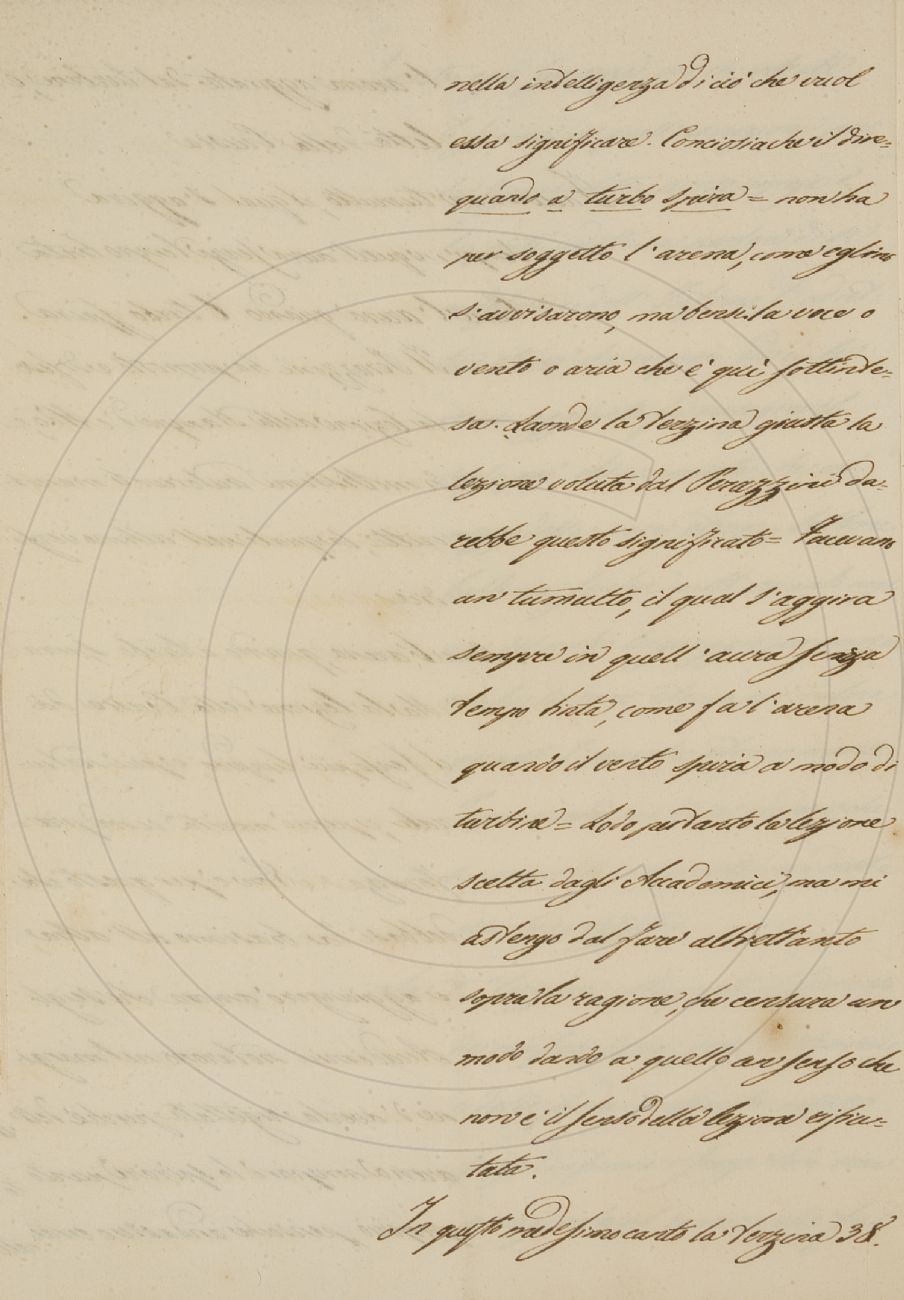 nella intelligenza di ciò che vuol
essa significare. Conciosiachè il dire=
quando a turbo spira = non ha
per soggetto l'arena, come eglino
s'avvisarono, ma bensì la voce o
vento o aria che è quì sottinte-
sa. Laonde la terzina giusta la
lezione voluta dal Perazzini da-
rebbe questo significato = Facevano
un tumulto, il qual s'aggira
sempre in quell'aura senza
tempo tinta, come fa l'arena
quando il vento spira a modo di
turbine = Lodo pertanto la lezione
scelta dagli Accademici, ma mi
astengo dal fare altrettanto
sopra la ragione, che censura un
modo dando a quello un senso che
non è il senso della lezione rifiu-
tata.
In questo medesimo canto la terzina 38.